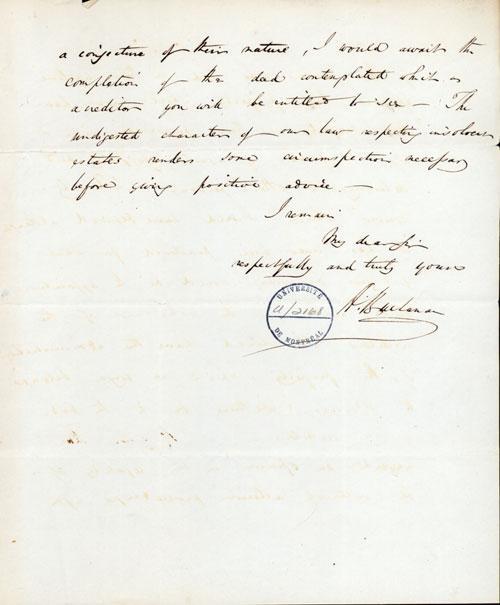 a conjecture of their nature, I would await the
completion of the deed contemplated which as
a creditor you will be entitled to see – The
undigested character of our law respecting insolvent
estates renders some circumspection necessary
before giving positive advice. –
I remain
My dear Sir
respectfully and truly yours
UNIVERSITÉ
U/2168
DE MONTRÉAL
A. Buchanan